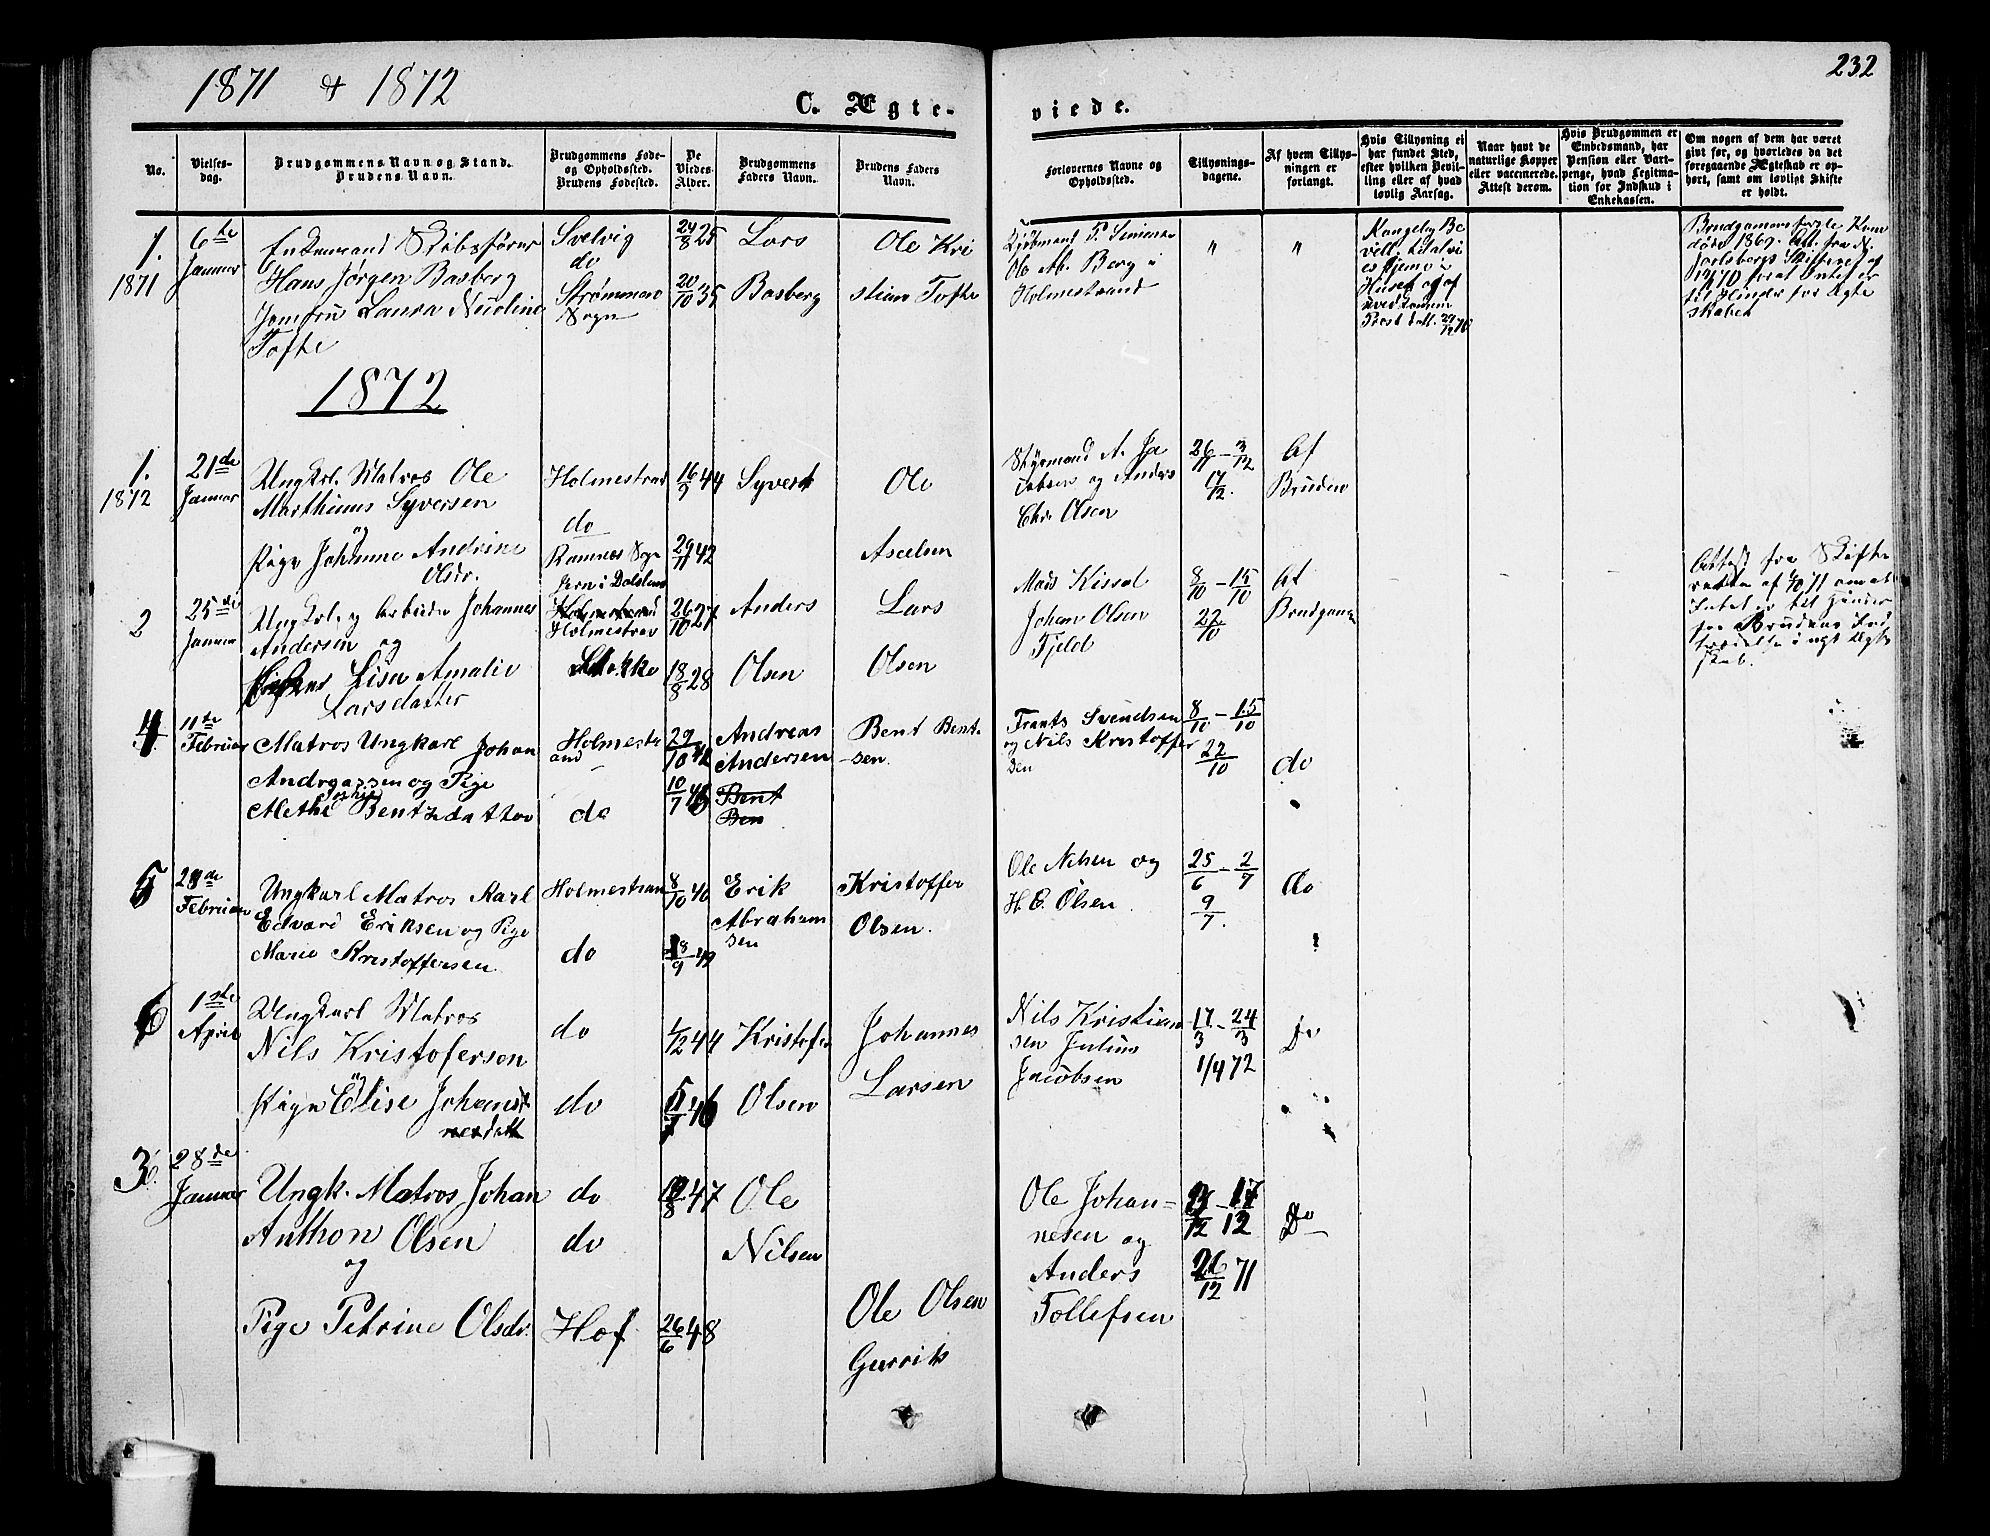 232
1871 & 1872
C. Ægte-
viede.
No.
Vielses-
dag.
Brudgommens Navn og Stand.
Brudens Navn.
Brudgommens Føde-
og Opholdssted.
Brudens Fødested.
De
Viedes
Alder.
Brudgommens
Faders Navn.
Brudens Faders
Navn.
Forlovernes Navne og
Opholdssted.
Tillysnings-
dagene.
Af hvem Tillys-
ningen er
forlangt.
Hvis Tillysning ei
har fundet Sted,
efter hvilken Bevil-
ling eller af hvad
lovlig Aarsag.
Naar havt de
naturlige Kopper
eller vaccinerede.
Attest derom.
Hvis Brudgommen er
Embedsmand, har
Pension eller Vart-
penge, hvad Legitima-
tion for Indskud i
Enkekassen.
Om nogen af dem har været
gift før, og hvorledes da det
foregaaende Ægteskab er op-
hørt, samt om lovligt Skifte
er holdt.
1.
1871
6te
Januar
Enkemand Skibsfører
Hans Jørgen Basberg
Jomfru Laura Nicoline
Tofte
Svelvig
do
Strømmen
Sogn
24/8 25
20/10 35
Lars
Basberg
Ole Kri
stian Tofte
Kjøbmand P. Simonsen
Ole Ab. Berg i
Holmestrand
"
"
Kongelig Be
vell. til at vi
es hjemme i
Huset og af
uvedkomm
Prest dat. 29/12 70
1872
1.
1872
21de
Januar
Ungkrl. Matros Ole
Marthinus Syversen
og
Pige Johanne Andrine
Olsdr.
Holmestrand
do
Ramnes Sogn
16/9 44
29/11 42
Syvert
Ole
Aselsen
Styrmand A. Ja
cobsen og Anders
Chr. Olsen
26/11 - 3/12
17/12.
Af
Bruden
2
25de
Januar
Ungkrl. og Arbeider Johannes
Andersen og
Lisa Amalie
Larsdatter
Holmestrand
Stokke
26/10 27
18/8 28
Anders
Olsen
Lars
Olsen
Mads Kissel
Johan Olsen
Fjeld
8/10 - 15/10
22/10
Af
Brudgommen
Attest fra Skifte
retten af 4/10 71 om at
Intet er til Hinder
for Brudens Ind
trædelse i nyt Ægte
skab.
4
11te
Februar
Matros Ungkarl Johan
Andreassen og Pige
Methe Sophie Bentzedatter
Holmestr
and
do
29/10 42
10/7 46
Andreas
Andersen
Bent
Ben
Bent Bent-
sen.
Frants Svendsen
og Nils Kristoffer
sen
8/10 - 15/10
22/10
do
5
Februar
Ungkarl Matros Karl
Edvard Eriksen og Pige
Marie Kristoffersen.
Holmestran
do
8/10 40
18/9 49
Erik
Abraham
sen
Kristoffer
Olsen.
Ole Nilsen og
H. C. Olsen.
25/6 - 2/7
9/7.
do
6
1ste
April
Ungkarl Matros
Nils Kristofersen
Pige Elise Johan
nesdatt
do
do
1/2 44
5/7 46
Kristofer
Olsen
Johannes
Larsen
Nils Kristian
sen Julius
Jacobsen
17/3 - 24/3
1/4 72
Do
3.
28de
Januar
Ungk. Matros Johan
Anthon Olsen
og
Pige Petrine Olsdr.
do
do
Hof
47
26/6 48
Ole
Nilsen
Ole Olsen
Ole Johan-
nesen og
Anders
Tollefsen
17/12
26/12 71
Do